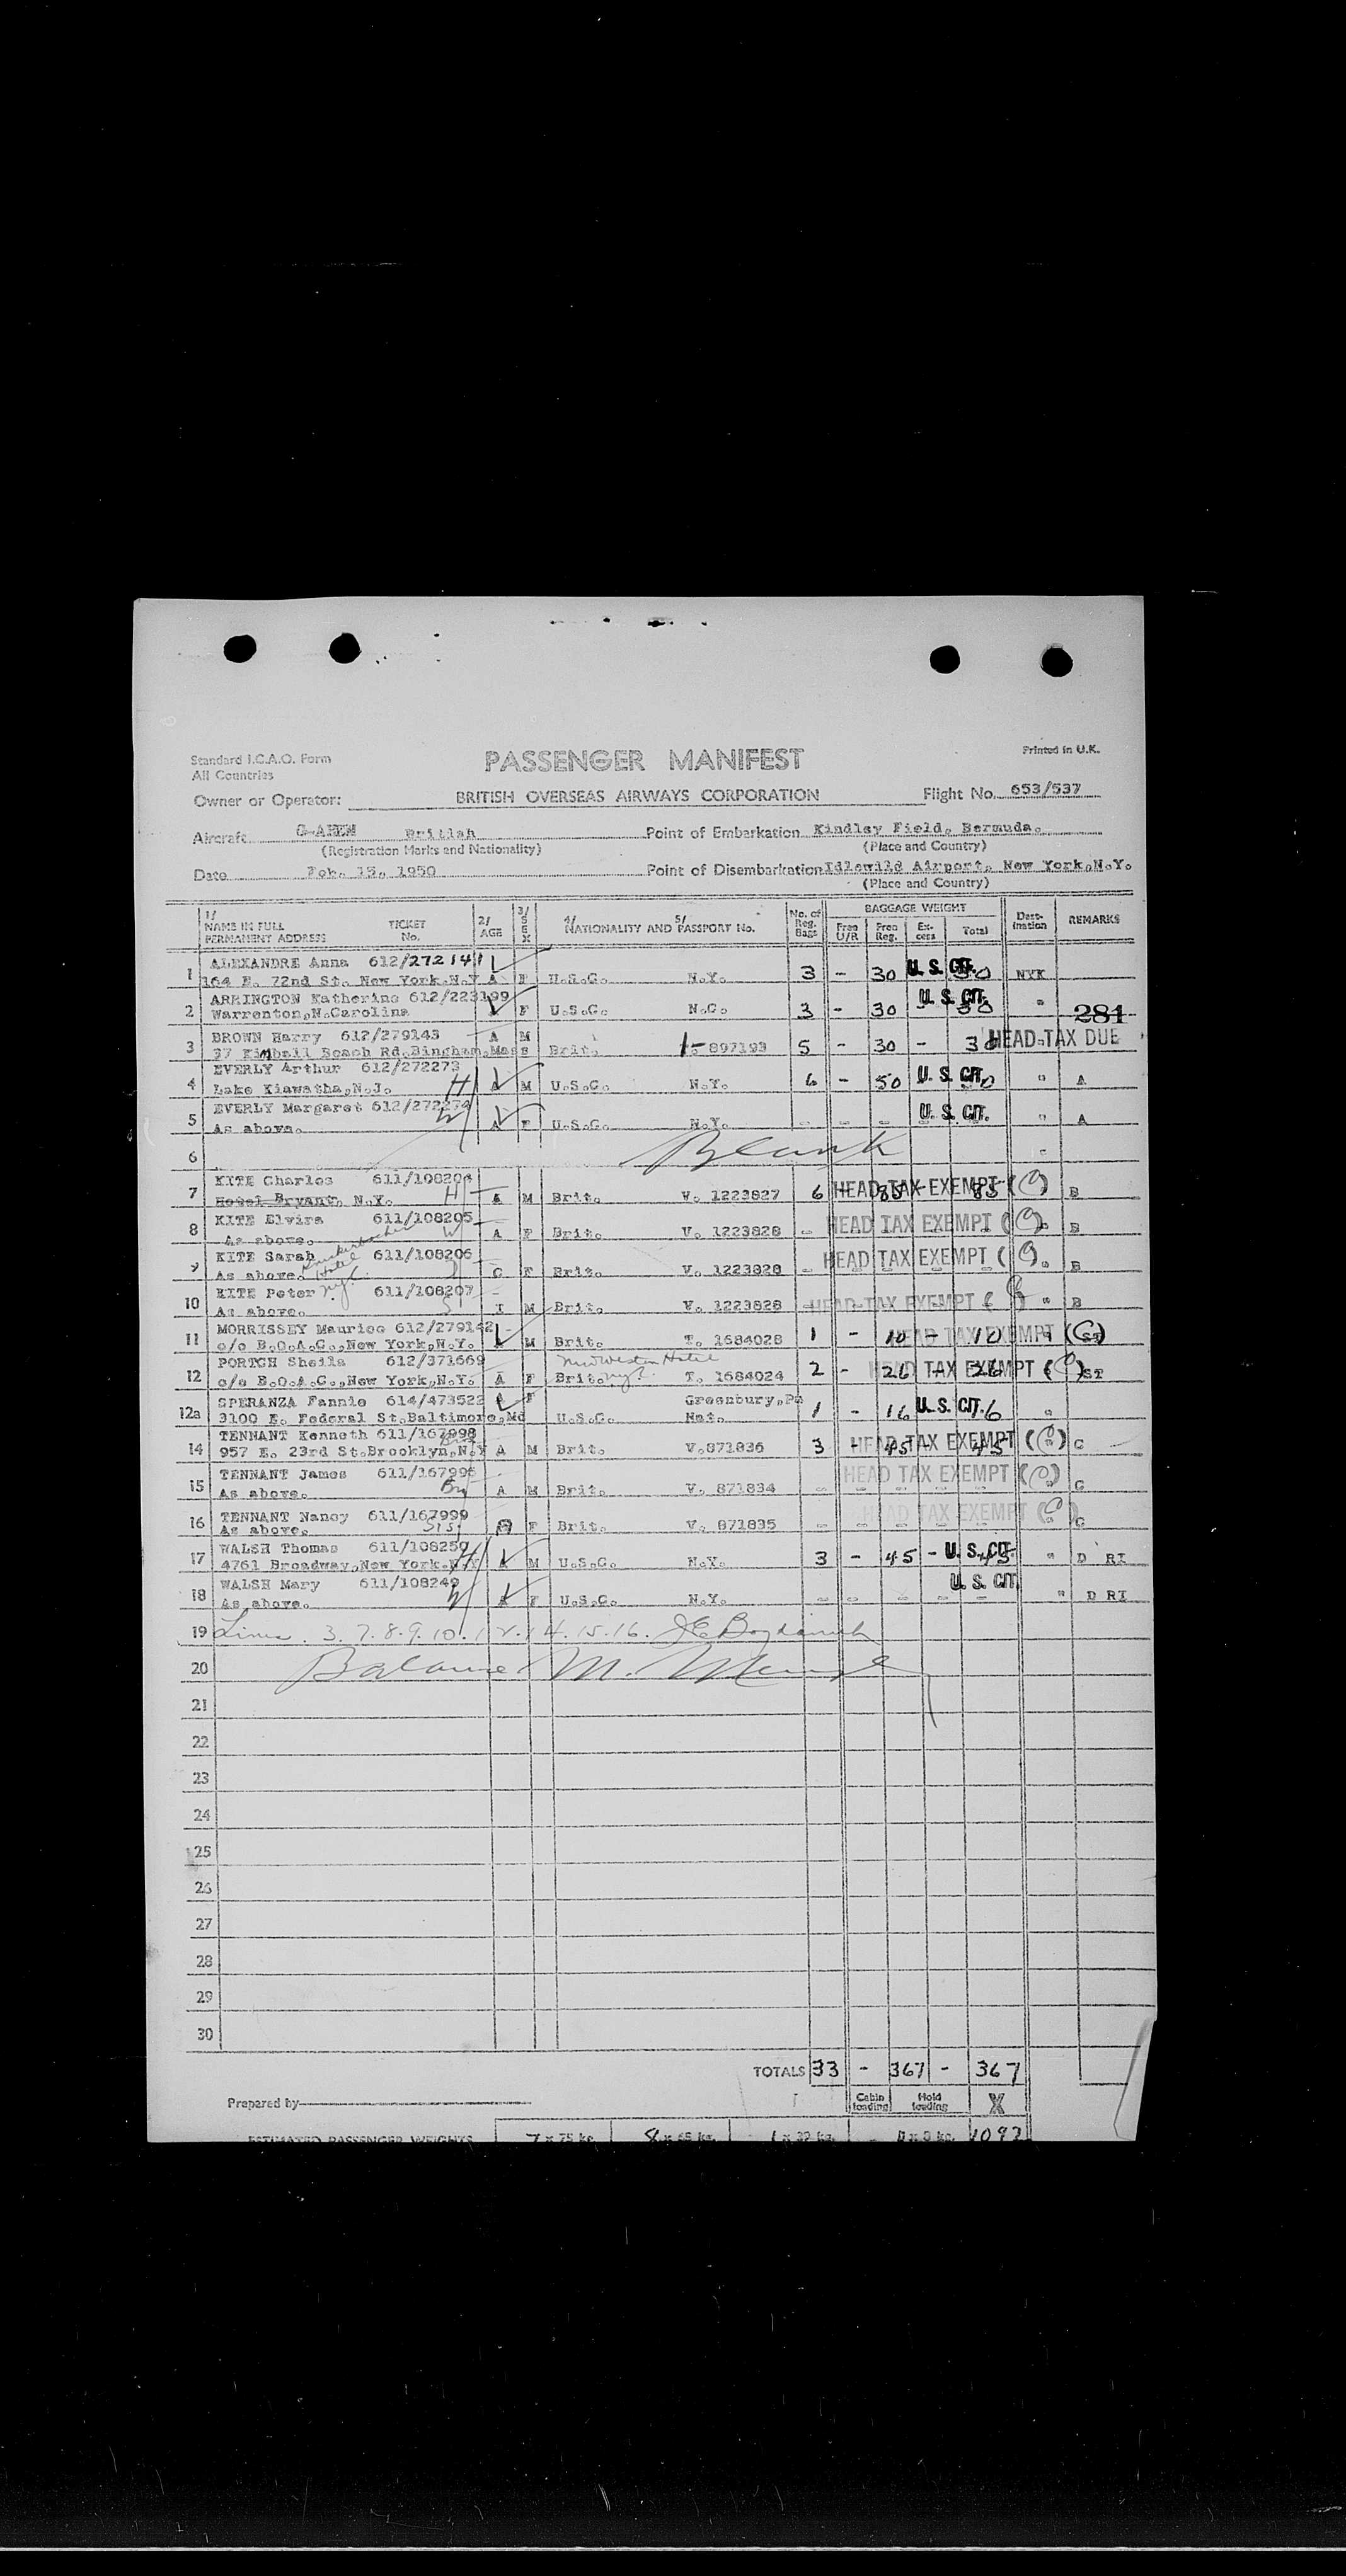 Standard I.C.A.O. Form
All Countries
PASSENGER MANIFEST
Printed in U.K.
Owner or Operator: BRITISH OVERSEAS AIRWAYS CORPORATION Flight No. 653/537
Aircraft G-AHEN British Point of Embarkation Kindley Field, Bermuda.
(Registration Marks and Nationality) (Place and Country)
Date Feb. 15, 1950 Point of Disembarkation Idlewild Airport, New York,N.Y.
(Place and Country)
1/ NAME IN FULL PERMANENT ADDRESS TICKET No. 2/ AGE 3/ SEX 4/ NATIONALITY AND 5/ PASSPORT No. No. of Reg. Bags BAGGAGE WEIGHT Free U/R Free Reg. Ex-cess Total Dest-ination REMARKS
1 ALEXANDRE Anna 612/272141
164 E. 72nd St. New York.N.Y A F U.S.C. N.Y. 3 - 30 U. S. CIT. 30 NYK
2 ARRINGTON Katherine 612/223199
Warrenton,N.Carolina A F U.S.C. N.C. 3 - 30 - U. S. CIT. 30 " 281
3 BROWN Harry 612/279143 A M
37 Kimball Beach Rd.Bingham,Mass Brit. 897193 5 - 30 - 30 HEAD TAX DUE
4 EVERLY Arthur 612/272273
Lake Hiawatha,N.J. H A M U.S.C. N.Y. 6 - 50 U. S. CIT. 50 " A
5 EVERLY Margaret 612/272274
As above. W A F U.S.C. N.Y. - - - U. S. CIT. " A
6 Blank "
7 KITE Charles 611/108204
Hotel Bryant, N.Y. H A M Brit. V. 1223827 6 HEAD TAX EXEMPT 85 - 85 B
8 KITE Elvira 611/108205
As above. W A F Brit. V. 1223828 - HEAD TAX EXEMPT " B
9 KITE Sarah 611/108206
As above. Hotel NYC C F Brit. V. 1223828 - HEAD TAX EXEMPT " B
10 KITE Peter 611/108207
As above. I M Brit. V. 1223828 - HEAD TAX EXEMPT " B
11 MORRISSEY Maurice 612/279142
c/o B.O.A.C.,New York,N.Y. A M Brit. T. 1684028 1 - 10 - 10 HEAD TAX EXEMPT " ST
12 PORTCH Sheila 612/371669 Midwestern Hotel
c/o B.O.A.C.,New York,N.Y. A F Brit. NYC. T. 1684024 2 - 26 - 26 HEAD TAX EXEMPT ST
12a SPERANZA Fannie 614/473522 A F Greenbury,Pa
3100 E. Federal St.Baltimore,Md U.S.C. Nat. 1 - 16 U. S. CIT. 16 "
14 TENNANT Kenneth 611/167998
957 E. 23rd St.Brooklyn,N.Y A M Brit. V.871836 3 - HEAD TAX EXEMPT 45 45 " C
15 TENNANT James 611/167996
As above. Bro A M Brit. V. 871834 - HEAD TAX EXEMPT C
16 TENNANT Nancy 611/167999
As above. Sis. A F Brit. V. 871835 - HEAD TAX EXEMPT C
17 WALSH Thomas 611/108250
4761 Broadway,New York.N.Y H A M U.S.C. N.Y. 3 - 45 - U. S. CIT. 45 " D RI
18 WALSH Mary 611/108249
As above. W A F U.S.C. N.Y. - - - - - U. S. CIT. " D RI
19 Lines 3. 7. 8. 9. 10. 12. 14. 15. 16.
20 Balance M.
21
22
23
24
25
26
27
28
29
30
TOTALS 33 - 367 - 367
Prepared by Cabin loading Hold loading X
ESTIMATED PASSENGER WEIGHTS 7 x 75 kg. 8 x 65 kg. 1 x 39 kg. 1093